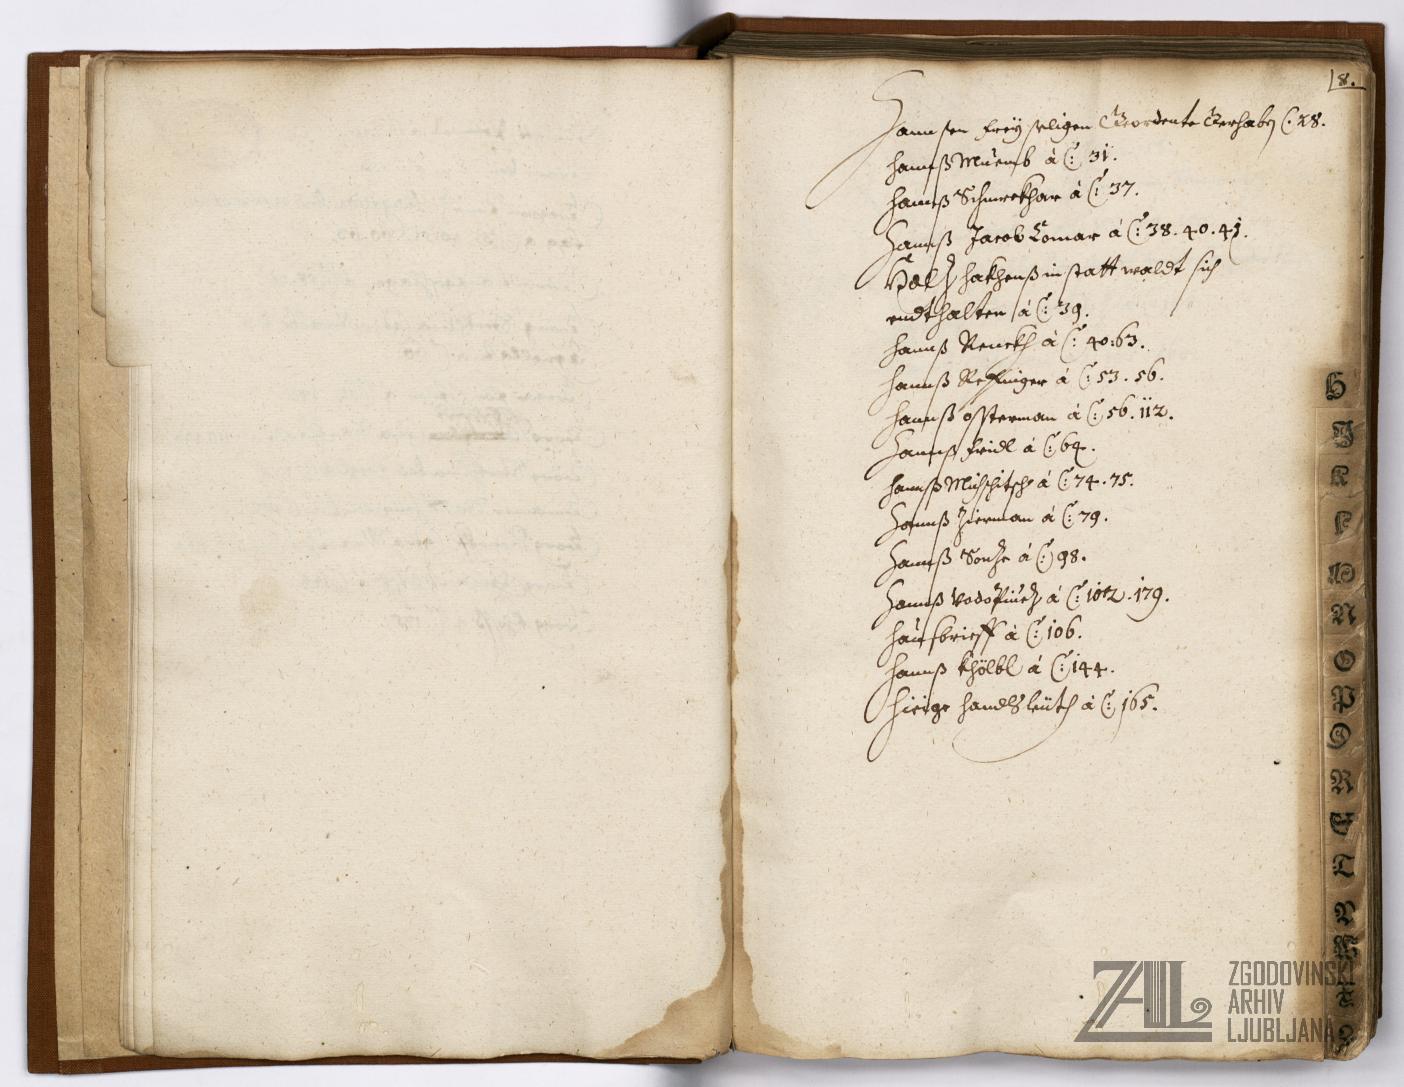 8.
Hannsen Freÿ seligen Geordente Gerhabn C: 28.
hannß Muemb à C: 31.
hannß Schmekhar à C: 37.
Hannß Jacob Comar à C: 38. 40. 41.
Holz hakhenß in statt waldt sich
endthalten à C: 39.
hannß Renckh à C: 40. 63.
hannß à C: 53. 56.
hannß osterman à C: 56. 112.
Hannß Fridl à C: 64.
hannß Mischitsch à C: 74. 75.
Hannß Zierman à C: 79.
Hannß à C: 98.
Hannß Vodopiuez à C: 102. 179.
hausbrieff à C: 106.
hannß Khölbl à C: 144.
hieige handlsleüth à C: 165.
H
I
K
L
M
N
O
P
Q
R
S
T
V
W
X
ZAL ZGODOVINSKI
ARHIV
LJUBLJANA